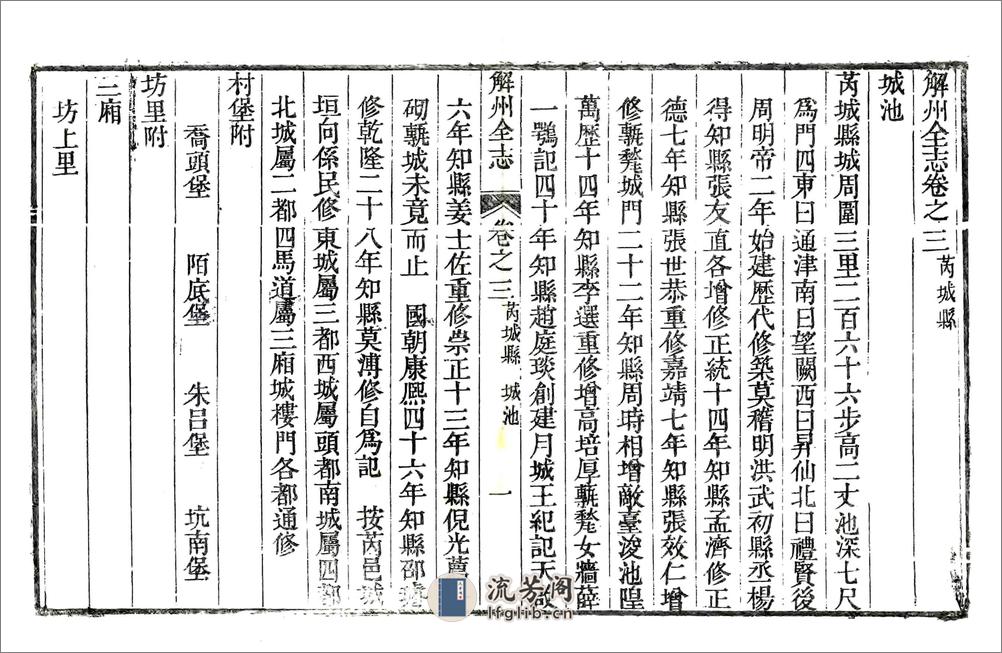 解州全志卷之三 芮城縣
城池
芮城縣城周圍三里二百六十六步高二丈池深七尺
爲門四東曰通津南曰望闕西曰昇仙北曰禮賢後
周明帝二年始建歷代修築莫稽明洪武初縣丞楊
得知縣張友直各增修正統十四年知縣孟濟修正
德七年知縣張世恭重修嘉靖七年知縣張效仁增
修甎甃城門二十二年知縣周時相增敵臺浚池隍
萬歷十四年知縣李選重修增高培厚甎甃女牆薛
一鶚記四十年知縣趙庭琰創建月城王紀記天啟
解州全志 卷之三 芮城縣 城池 一
六年知縣姜士佐重修崇正十三年知縣倪光薦
砌甎城未竟而止 國朝康熙四十六年知縣邵
修乾隆二十八年知縣莫溥修自爲記 按芮邑城
垣向係民修東城屬三都西城屬頭都南城屬四都
北城屬二都四馬道屬三廂城樓門各都通修
村堡附
喬頭堡 陌底堡 朱呂堡 坑南堡
坊里附
三廂
坊上里
流芳阁
lfglib.cn